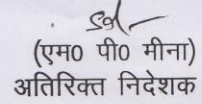 (एम0 पी0 मीना)
अतिरिक्त निदेशक